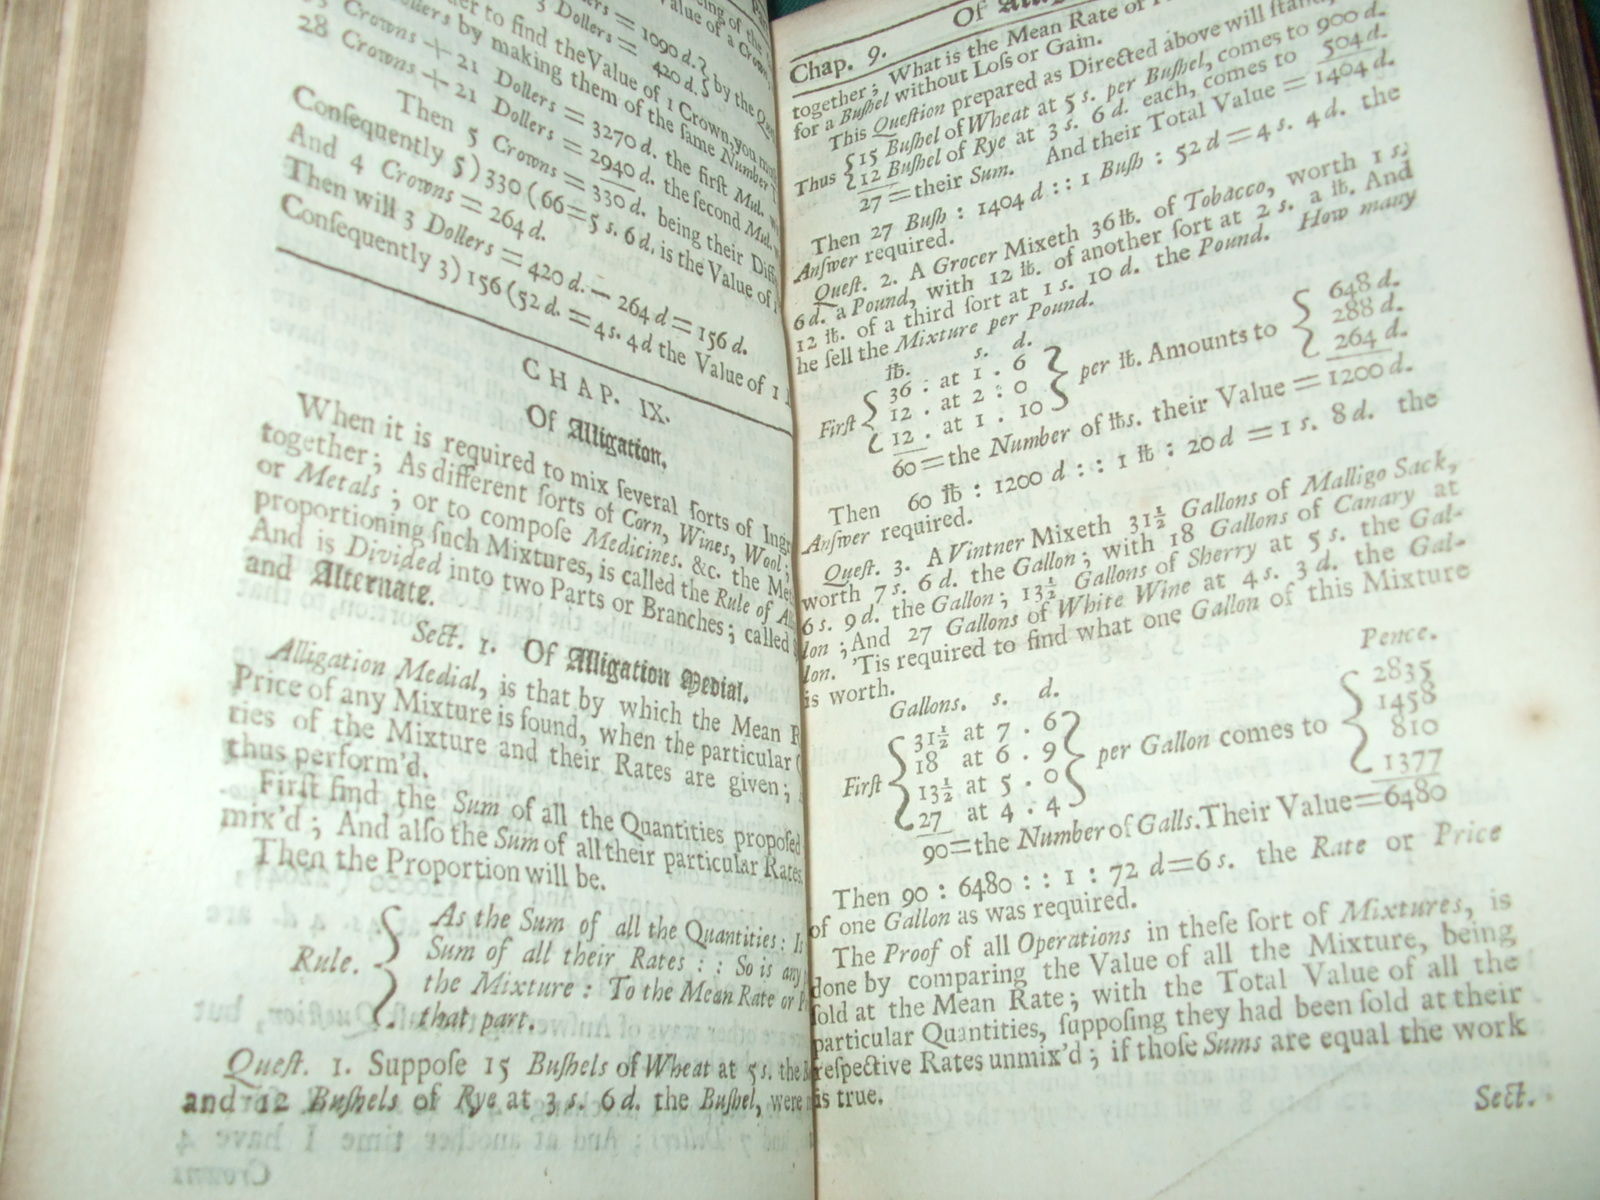 Dollers = 1090 d.
3 Dollers = 420 d.
to find the Value of 1 Crown, you
by making them of the same Number
Crowns + 21 Dollers = 3270 d. the first Mul.
28 Crowns + 21 Dollers = 2940 d. the second Mul.
Then 5 Crowns = 330 d. being their
Conſequently 5) 330 (66 = 5 s. 6 d. is the Value of
And 4 Crowns = 264 d.
Then will 3 Dollers = 420 d. — 264 d = 156 d.
Conſequently 3) 156 (52 d. = 4 s. 4d the Value of 1
CHAP. IX.
Of Alligation.
When it is required to mix ſeveral ſorts of
together; As different ſorts of Corn, Wines, Wool;
or Metals; or to compoſe Medicines. &c. the
proportioning ſuch Mixtures, is called the Rule of
And is Divided into two Parts or Branches; called
and Alternate.
Sect. 1. Of Alligation Medial.
Alligation Medial, is that by which the Mean
Price of any Mixture is found, when the particular
ties of the Mixture and their Rates are given;
thus perform'd.
Firſt find the Sum of all the Quantities propoſed
mix'd; And alſo the Sum of all their particular Rates.
Then the Proportion will be.
Rule. { As the Sum of all the Quantities: Is
Sum of all their Rates : : So is any
the Mixture : To the Mean Rate or
that part.
Queſt. 1. Suppoſe 15 Buſhels of Wheat at 5 s. the
and 12 Buſhels of Rye at 3 s. 6 d. the Buſhel, were
Crowns
Chap. 9. Of
together; What is the Mean Rate or
for a Buſhel without Loſs or Gain.
This Queſtion prepared as Directed above will ſtand,
Thus { 15 Buſhel of Wheat at 5 s. per Buſhel, comes to 900 d.
12 Buſhel of Rye at 3 s. 6 d. each, comes to 504 d.
27 = their Sum. And their Total Value = 1404 d.
Then 27 Buſh : 1404 d : : 1 Buſh : 52 d = 4 s. 4 d. the
Anſwer required.
Queſt. 2. A Grocer Mixeth 36 ℔. of Tobacco, worth 1 s.
6 d. a Pound, with 12 ℔. of another ſort at 2 s. a ℔. And
12 ℔. of a third ſort at 1 s. 10 d. the Pound. How many
he ſell the Mixture per Pound.
℔. s. d.
36 : at 1 . 6 648 d.
Firſt { 12 . at 2 : 0 } per ℔. Amounts to { 288 d.
12 . at 1 . 10 264 d.
60 = the Number of ℔s. their Value = 1200 d.
Then 60 ℔ : 1200 d : : 1 ℔ : 20 d = 1 s. 8 d. the
Anſwer required.
Queſt. 3. A Vintner Mixeth 31½ Gallons of Malligo Sack,
worth 7 s. 6 d. the Gallon; with 18 Gallons of Canary at
6 s. 9 d. the Gallon; 13½ Gallons of Sherry at 5 s. the Gal-
lon; And 27 Gallons of White Wine at 4 s. 3 d. the Gal-
lon. 'Tis required to find what one Gallon of this Mixture
is worth.
Gallons. s. d. Pence.
31½ at 7 . 6 2835
Firſt { 18 at 6 . 9 } per Gallon comes to { 1458
13½ at 5 . 0 810
27 at 4 . 4 1377
90 = the Number of Galls. Their Value = 6480
Then 90 : 6480 : : 1 : 72 d = 6 s. the Rate or Price
of one Gallon as was required.
The Proof of all Operations in theſe ſort of Mixtures, is
done by comparing the Value of all the Mixture, being
ſold at the Mean Rate; with the Total Value of all the
particular Quantities, ſuppoſing they had been ſold at their
reſpective Rates unmix'd; if thoſe Sums are equal the work
is true.
Sect.